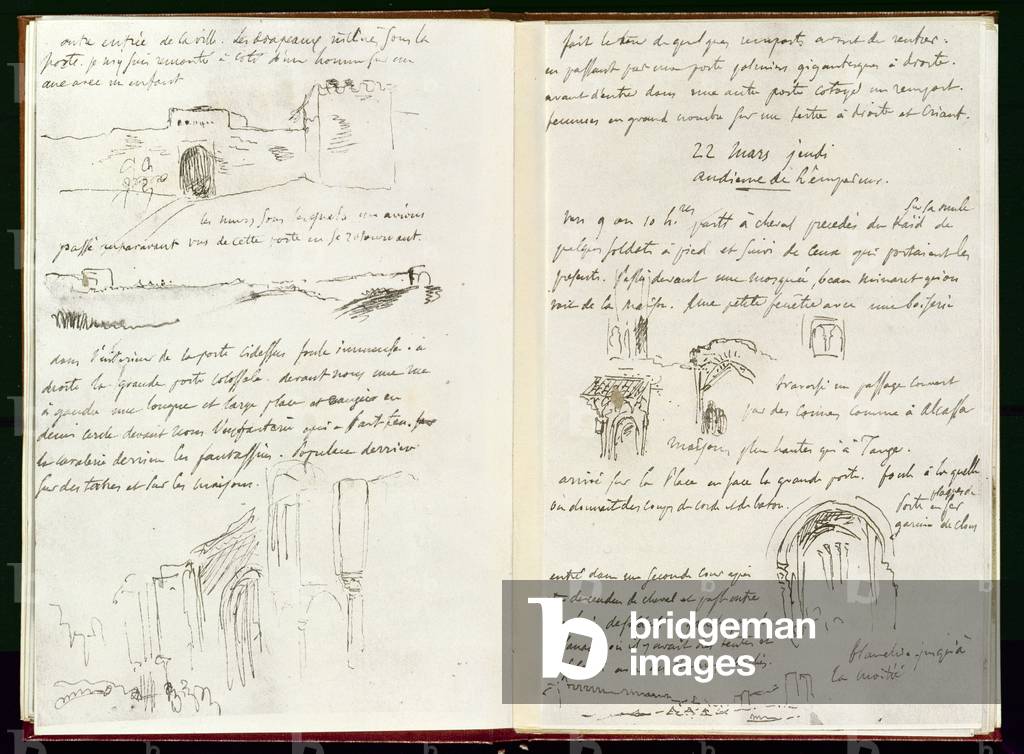 entrée de la ville. Les drapeaux inclinés sous la
porte. je m'y suis remonté à coté d'un homme sur un
ane avec un enfant
les murs sous lesquels nous avions
passé auparavant vus de cette porte en se retournant.
dans l'intérieur de la porte foule immense. à
droite la grande porte colossale. devant nous une rue
à gauche une longue et large place et rangée en
demi cercle devant nous l'infanterie qui
la cavalerie derrière les fantassins. Populace derrière
sur des tertres et sur les maisons.
fait le tour de quelques remparts avant de rentrer.
en passant par une porte gigantesques à droite.
avant d'entrer dans une autre porte cotoyé un rempart.
femmes en grand nombre sur un tertre à droite et criant.
22 mars jeudi
audience de l'empereur.
vers 9 ou 10 h.res partis à cheval precedés du Kaid sur sa mule de
quelques soldats à pied et suivi de ceux qui portaient les
présents. Passé devant une mosquée, beau minaret qu'on
voit de la maison. Une petite fenêtre avec une boiserie
traversé un passage couvert
par des cannes comme à Alcassa
maisons plus hautes qu'à Tange.
arrivé sur la Place en face la grande porte. foule à laquelle
on donnait des coups de corde et de baton.
plaques de
Porte en fer
garnie de clous
entré dans une seconde cour après
descendu de cheval et passé entre
où il y avait des tentes et
blanchie jusqu'à
la moitié
bridgeman
images